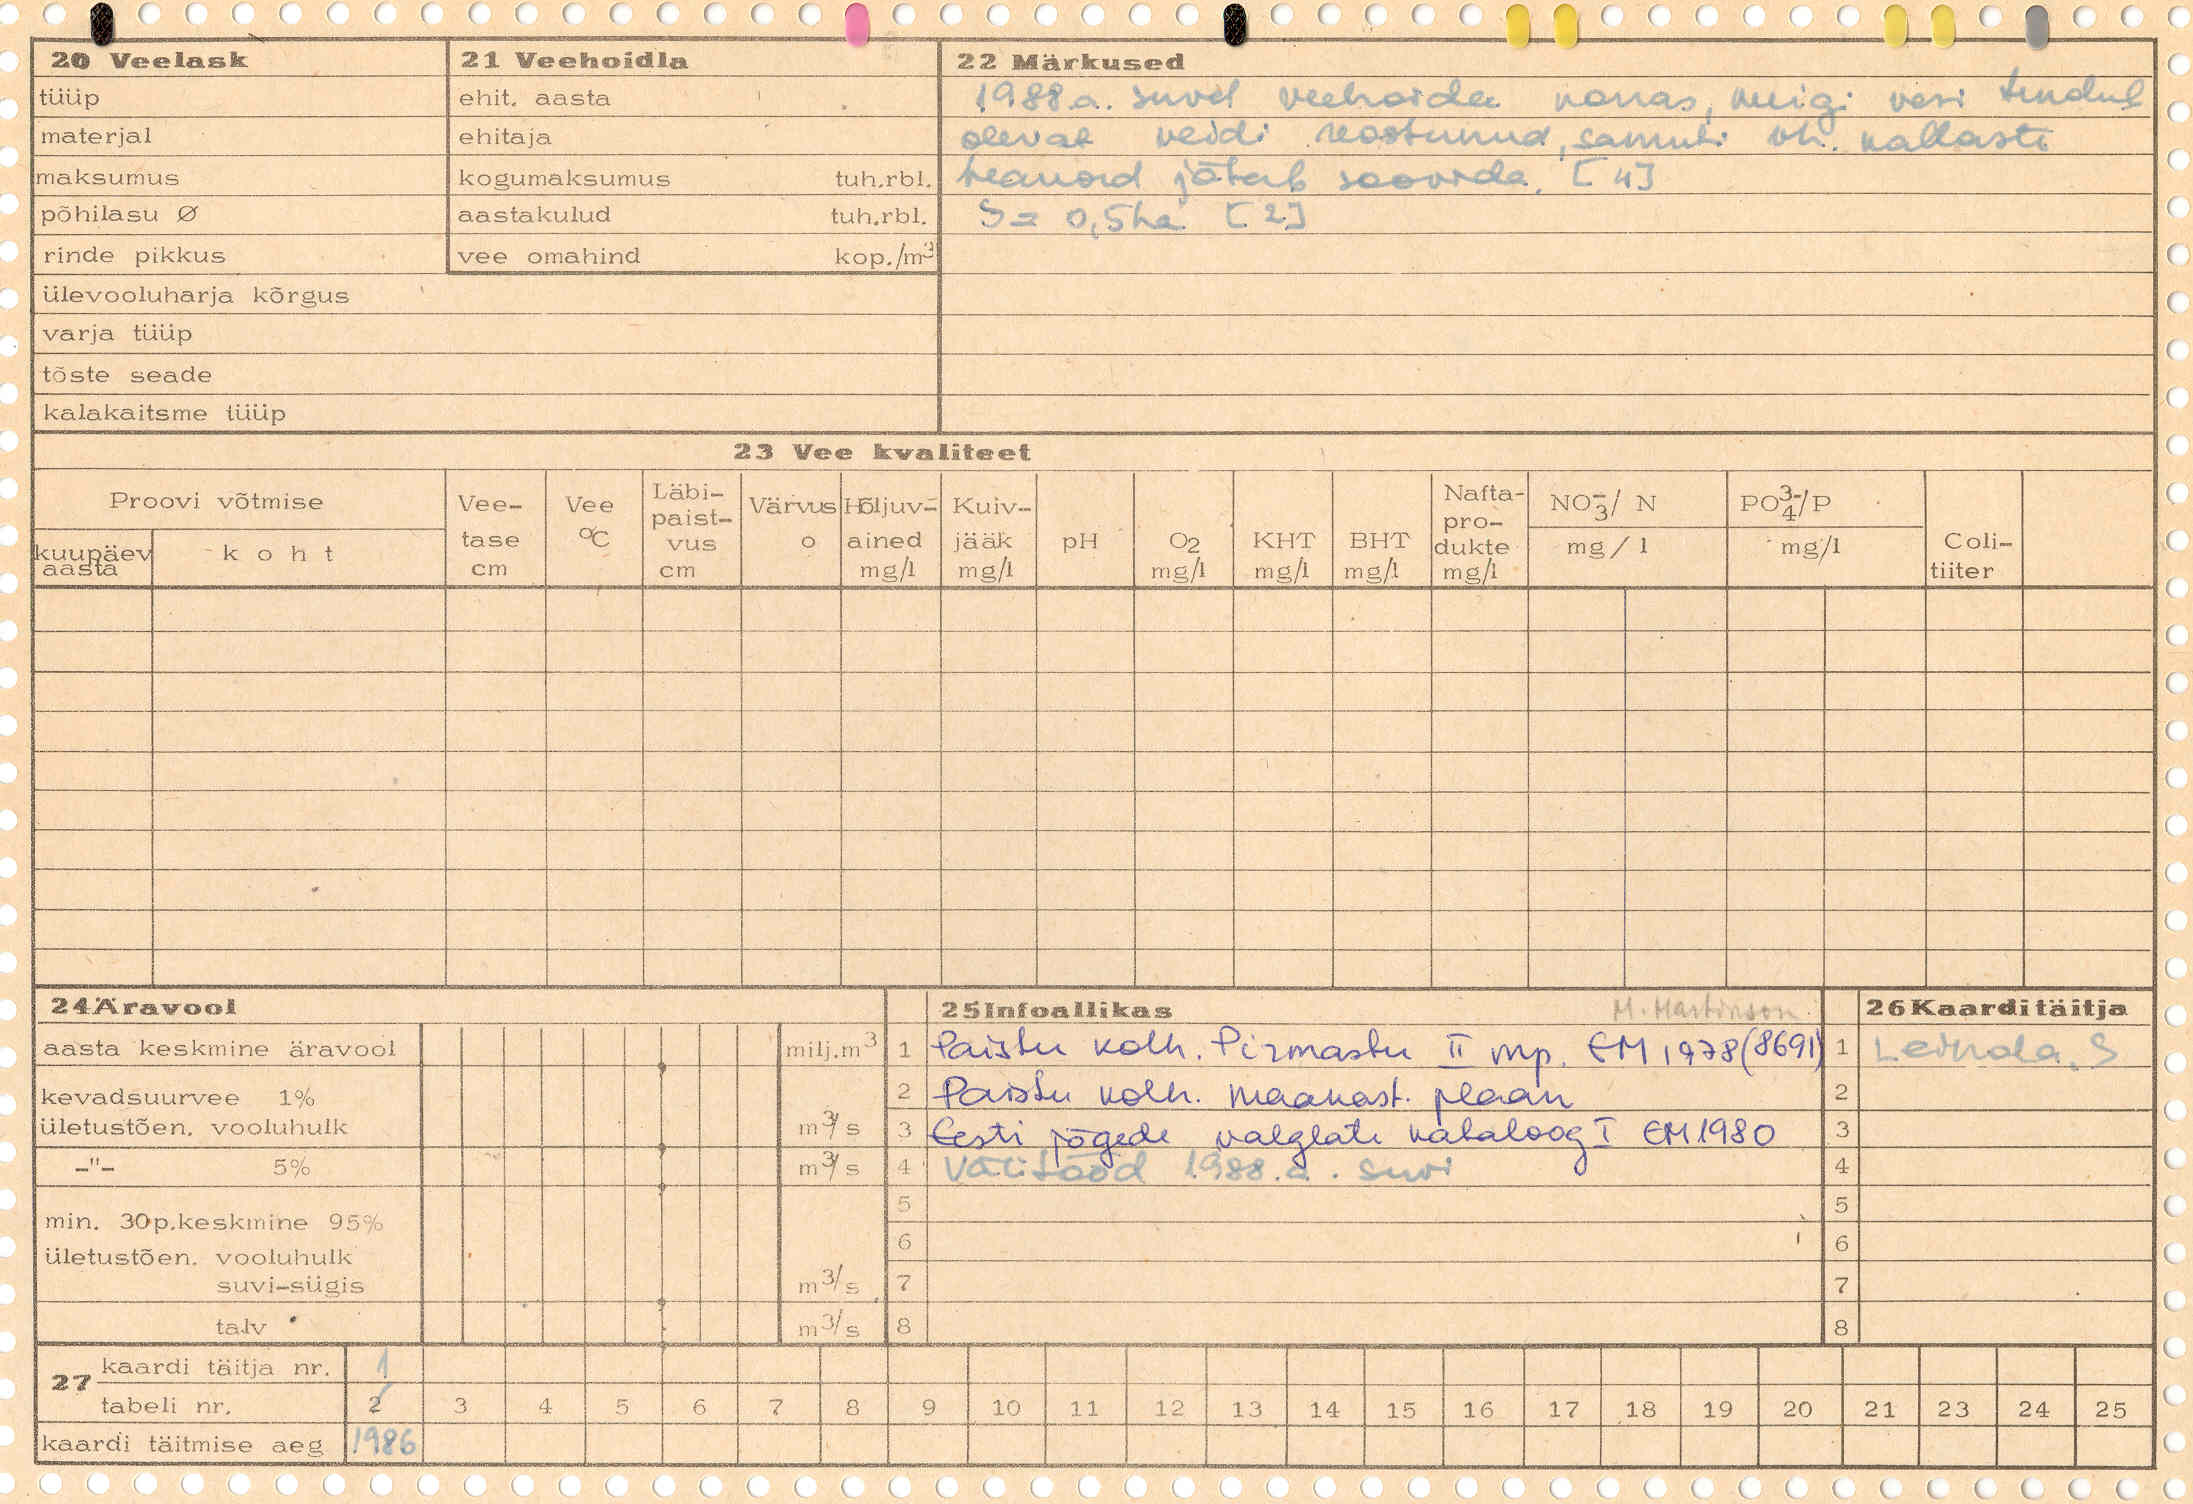 20 Veelask
tüüp
materjal
maksumus
põhilasu Ø
rinde pikkus
ülevooluharja kõrgus
varja tüüp
tõste seade
kalakaitsme tüüp
21 Veehoidla
ehit. aasta
ehitaja
kogumaksumus tuh.rbl.
aastakulud tuh.rbl.
vee omahind kop./m³
22 Märkused
1988.a. suvel veehoidla korras, kuigi vesi tundub
olevat veidi reostunud, samuti vh. kallaste
seisund jätab soovida. [4]
S = 0,5ha [2]
23 Vee kvaliteet
Proovi võtmise
kuupäev aasta
koht
Vee-tase cm
Vee °C
Läbi-paist-vus cm
Värvus o
Hõljuv-ained mg/l
Kuiv-jääk mg/l
pH
O2 mg/l
KHT mg/l
BHT mg/l
Nafta-pro-dukte mg/l
NO3⁻/ N mg/l
PO4³⁻/P mg/l
Coli-tiiter
24 Äravool
aasta keskmine äravool milj.m³
kevadsuurvee 1%
ületustõen. vooluhulk m³/s
-"- 5% m³/s
min. 30p.keskmine 95%
ületustõen. vooluhulk
suvi-sügis m³/s
talv m³/s
25 Infoallikas M. Martinson
1 Paistu kolh. Pirmastu II mp. EM 1978 (8691)
2 Paistu kolh. maakast. plaan
3 Eesti jõgede valglate kataloog I EM 1980
4 Välitööd 1988.a. suvi
5
6
7
8
26 Kaardi täitja
1 Leinola. S
2
3
4
5
6
7
8
27
kaardi täitja nr. 1
tabeli nr. 2 3 4 5 6 7 8 9 10 11 12 13 14 15 16 17 18 19 20 21 23 24 25
kaardi täitmise aeg 1986